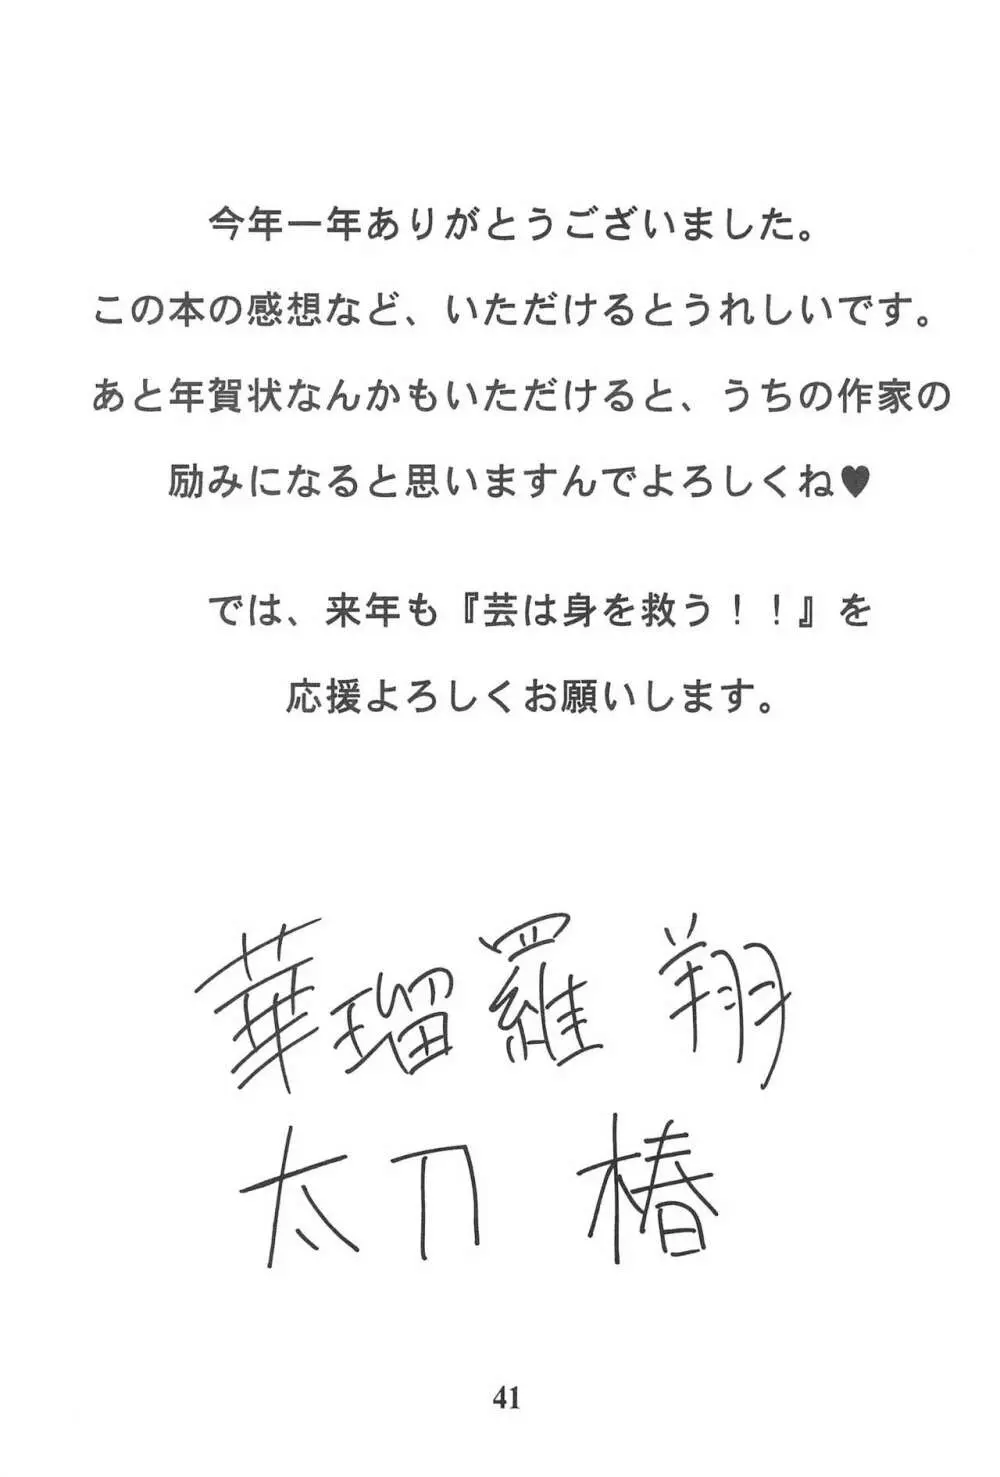 今年一年ありがとうございました。
この本の感想など、いただけるとうれしいです。
あと年賀状なんかもいただけると、うちの作家の
励みになると思いますんでよろしくね♥
では、来年も『芸は身を救う！！』を
応援よろしくお願いします。
華瑠羅 翔
太刀 椿
41